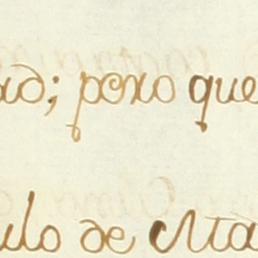 ad; pero que
ulo de Ma